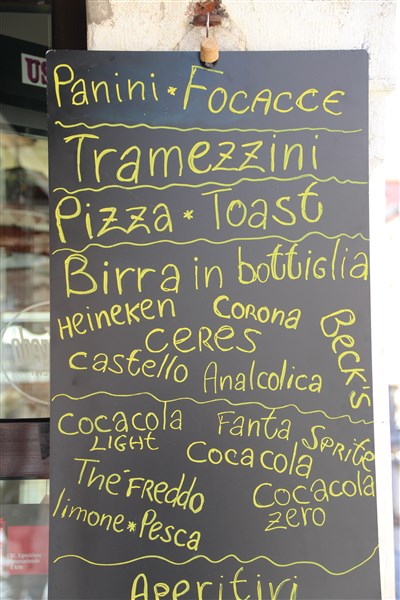 US
Panini * FOCACCE
Tramezzini
Pizza * Toast
Birra in bottiglia
HEINEKEN CORONA
CERES BECK'S
castello Analcolica
COCACOLA Fanta, SPRITE
LIGHT COCACOLA
The' FREDDO COCACOLA
limone * Pesca ZERO
APERITIRI